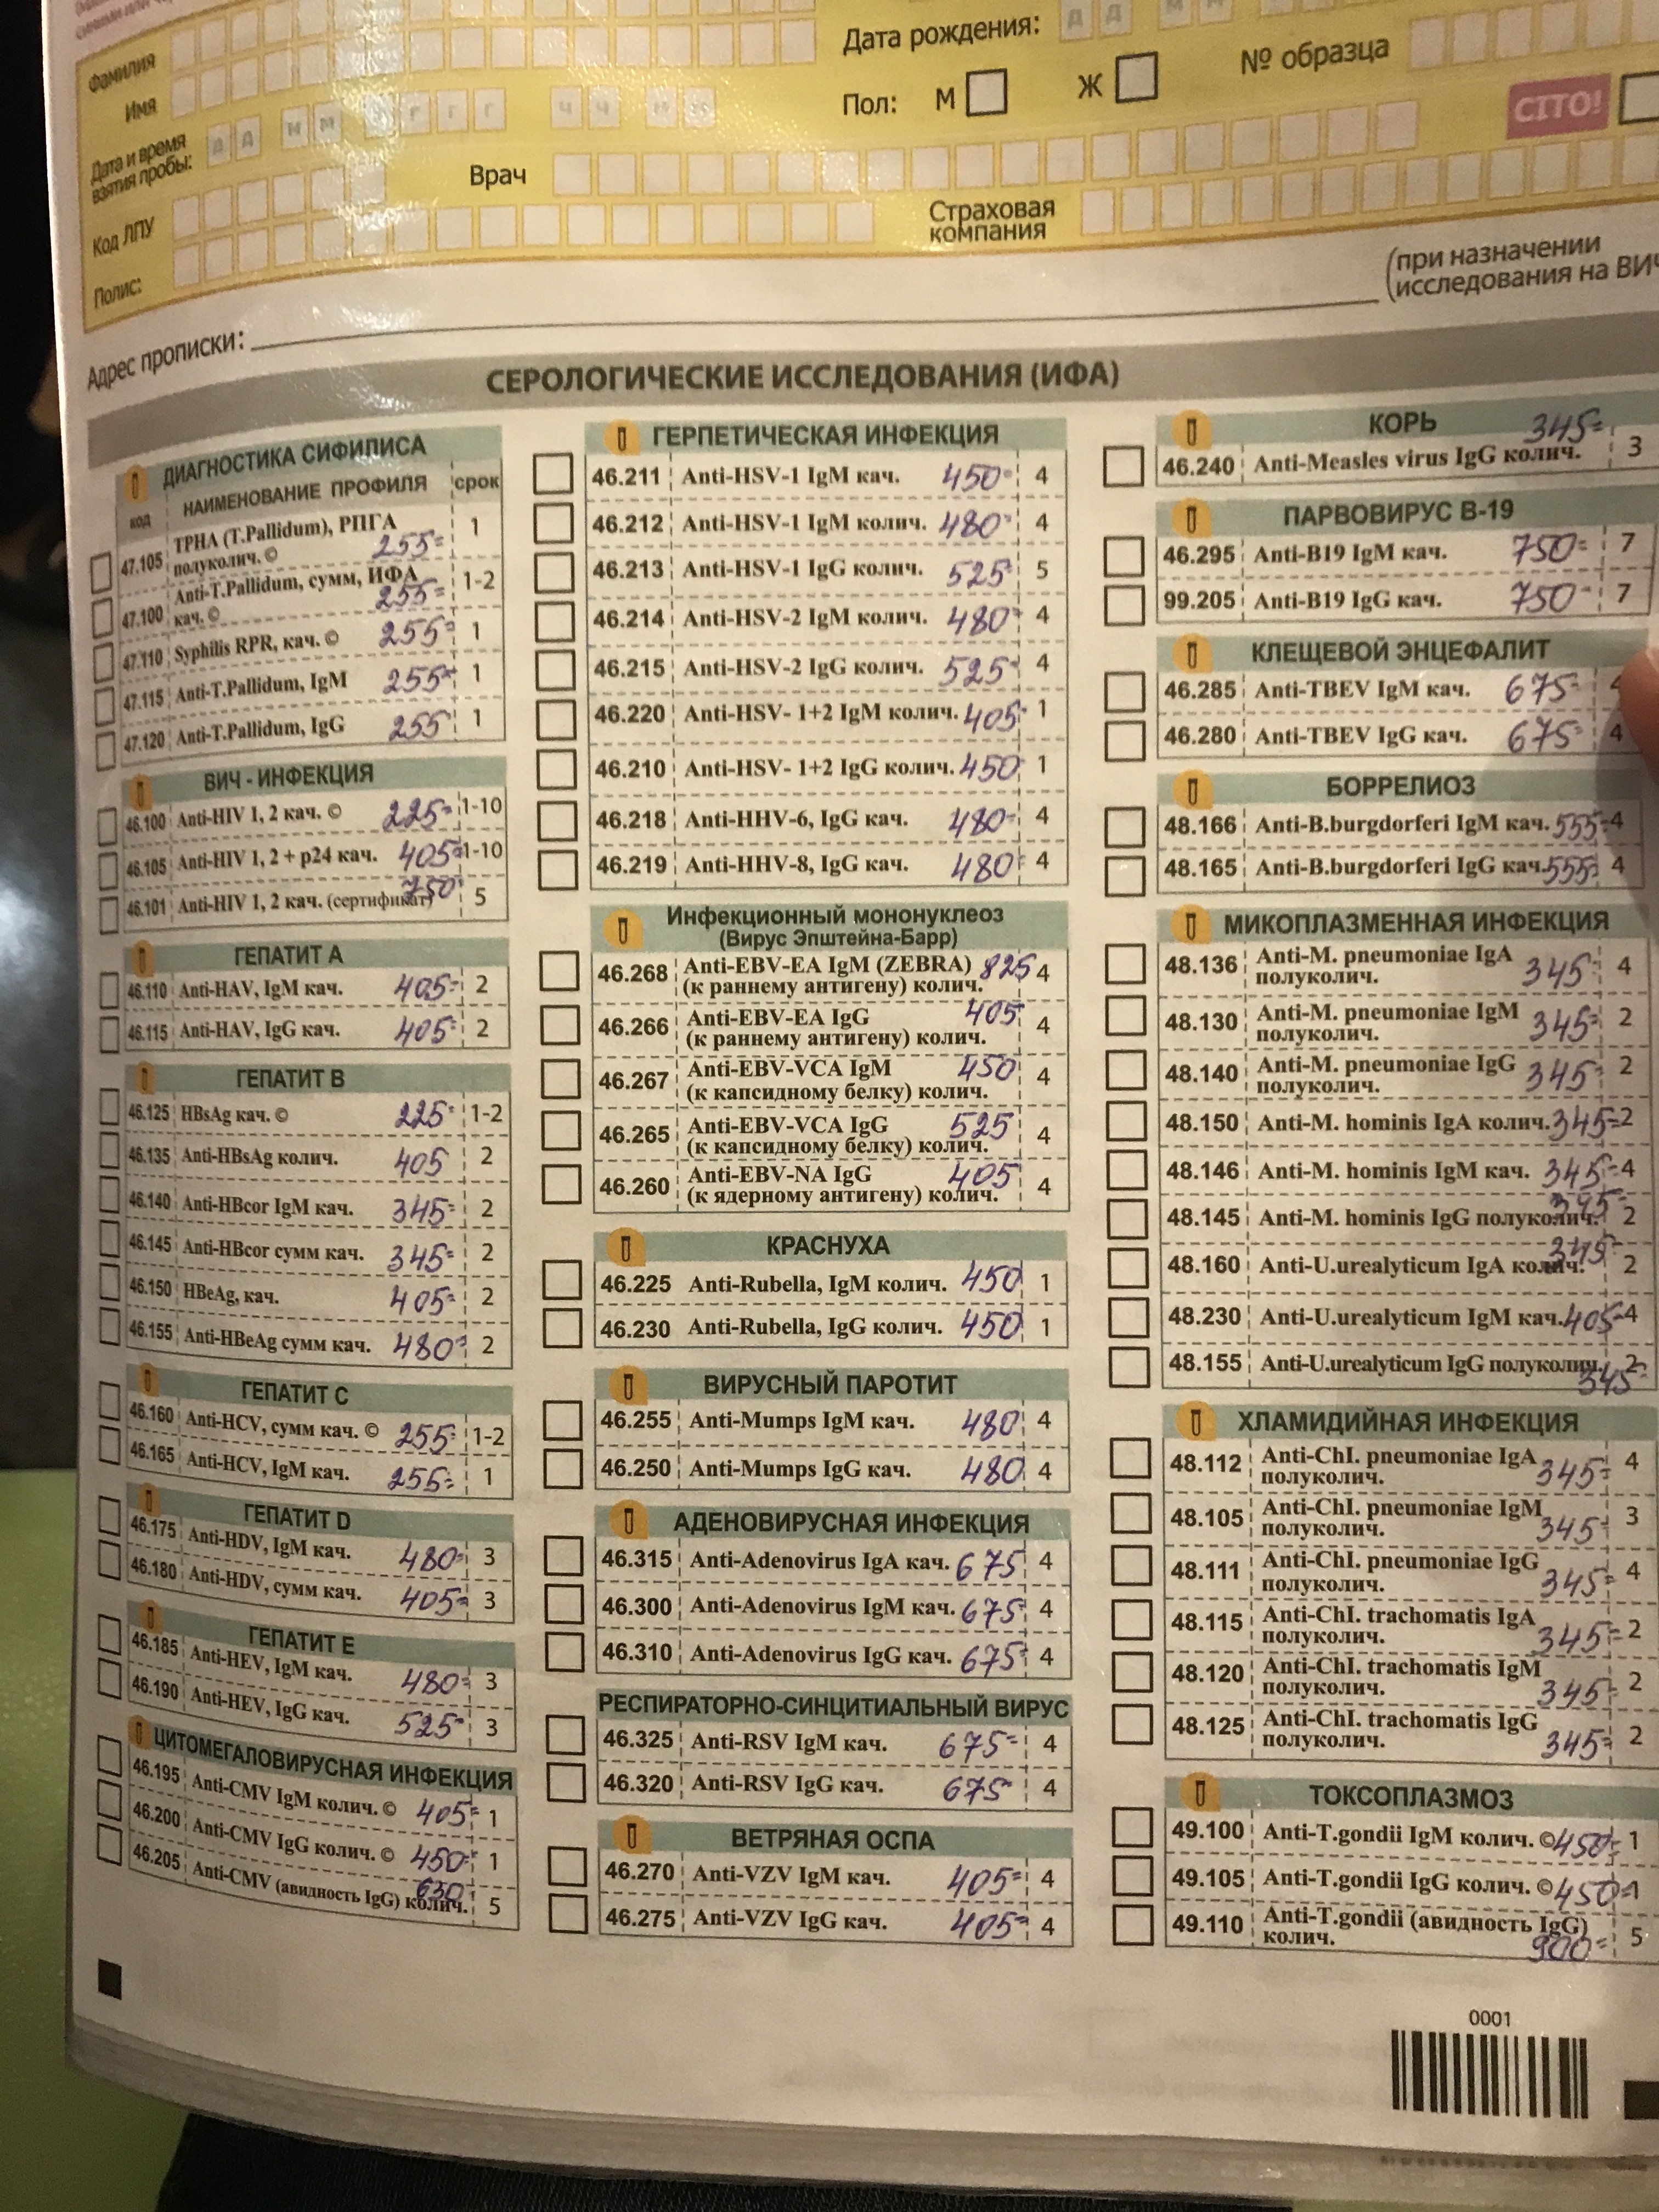 Фамилия
Имя
Дата и время
взятия пробы:
Д Д М М Г Г Г Ч Ч М М
Код ЛПУ
Полис:
Дата рождения:
Д Д
Пол: М Ж
№ образца
CITO!
Врач
Страховая
компания
(при назначении
исследования на ВИЧ
Адрес прописки:
СЕРОЛОГИЧЕСКИЕ ИССЛЕДОВАНИЯ (ИФА)
ДИАГНОСТИКА СИФИЛИСА
код НАИМЕНОВАНИЕ ПРОФИЛЯ срок
47.105 TPHA (T.Pallidum), РПГА
полуколич. © 255= 1
47.100 Anti-T.Pallidum, сумм, ИФА
кач. © 255= 1-2
47.110 Syphilis RPR, кач. © 255= 1
47.115 Anti-T.Pallidum, IgM 255= 1
47.120 Anti-T.Pallidum, IgG 255= 1
ВИЧ - ИНФЕКЦИЯ
46.100 Anti-HIV 1, 2 кач. © 225= 1-10
46.105 Anti-HIV 1, 2 + p24 кач. 405= 1-10
46.101 Anti-HIV 1, 2 кач. (сертификат) 750= 5
ГЕПАТИТ A
46.110 Anti-HAV, IgM кач. 405= 2
46.115 Anti-HAV, IgG кач. 405= 2
ГЕПАТИТ B
46.125 HBsAg кач. © 225= 1-2
46.135 Anti-HBsAg колич. 405 2
46.140 Anti-HBcor IgM кач. 345= 2
46.145 Anti-HBcor сумм кач. 345= 2
46.150 HBeAg, кач. 405= 2
46.155 Anti-HBeAg сумм кач. 480= 2
ГЕПАТИТ C
46.160 Anti-HCV, сумм кач. © 255= 1-2
46.165 Anti-HCV, IgM кач. 255= 1
ГЕПАТИТ D
46.175 Anti-HDV, IgM кач. 480= 3
46.180 Anti-HDV, сумм кач. 405= 3
ГЕПАТИТ E
46.185 Anti-HEV, IgM кач. 480= 3
46.190 Anti-HEV, IgG кач. 525= 3
ЦИТОМЕГАЛОВИРУСНАЯ ИНФЕКЦИЯ
46.195 Anti-CMV IgM колич. © 405= 1
46.200 Anti-CMV IgG колич. © 450= 1
46.205 Anti-CMV (авидность IgG) колич. 630 5
ГЕРПЕТИЧЕСКАЯ ИНФЕКЦИЯ
46.211 Anti-HSV-1 IgM кач. 450= 4
46.212 Anti-HSV-1 IgM колич. 480= 4
46.213 Anti-HSV-1 IgG колич. 525= 5
46.214 Anti-HSV-2 IgM колич. 480= 4
46.215 Anti-HSV-2 IgG колич. 525= 4
46.220 Anti-HSV- 1+2 IgM колич. 405= 1
46.210 Anti-HSV- 1+2 IgG колич. 450 1
46.218 Anti-HHV-6, IgG кач. 480= 4
46.219 Anti-HHV-8, IgG кач. 480= 4
Инфекционный мононуклеоз
(Вирус Эпштейна-Барр)
46.268 Anti-EBV-EA IgM (ZEBRA) 825 4
(к раннему антигену) колич.
46.266 Anti-EBV-EA IgG 405= 4
(к раннему антигену) колич.
46.267 Anti-EBV-VCA IgM 450 4
(к капсидному белку) колич.
46.265 Anti-EBV-VCA IgG 525 4
(к капсидному белку) колич.
46.260 Anti-EBV-NA IgG 405 4
(к ядерному антигену) колич.
КРАСНУХА
46.225 Anti-Rubella, IgM колич. 450 1
46.230 Anti-Rubella, IgG колич. 450 1
ВИРУСНЫЙ ПАРОТИТ
46.255 Anti-Mumps IgM кач. 480 4
46.250 Anti-Mumps IgG кач. 480 4
АДЕНОВИРУСНАЯ ИНФЕКЦИЯ
46.315 Anti-Adenovirus IgA кач. 675 4
46.300 Anti-Adenovirus IgM кач. 675= 4
46.310 Anti-Adenovirus IgG кач. 675= 4
РЕСПИРАТОРНО-СИНЦИТИАЛЬНЫЙ ВИРУС
46.325 Anti-RSV IgM кач. 675= 4
46.320 Anti-RSV IgG кач. 675= 4
ВЕТРЯНАЯ ОСПА
46.270 Anti-VZV IgM кач. 405= 4
46.275 Anti-VZV IgG кач. 405= 4
КОРЬ
46.240 Anti-Measles virus IgG колич. 345= 3
ПАРВОВИРУС В-19
46.295 Anti-B19 IgM кач. 750= 7
99.205 Anti-B19 IgG кач. 750= 7
КЛЕЩЕВОЙ ЭНЦЕФАЛИТ
46.285 Anti-TBEV IgM кач. 675= 4
46.280 Anti-TBEV IgG кач. 675= 4
БОРРЕЛИОЗ
48.166 Anti-B.burgdorferi IgM кач. 555= 4
48.165 Anti-B.burgdorferi IgG кач. 555= 4
МИКОПЛАЗМЕННАЯ ИНФЕКЦИЯ
48.136 Anti-M. pneumoniae IgA
полуколич. 345= 4
48.130 Anti-M. pneumoniae IgM
полуколич. 345= 2
48.140 Anti-M. pneumoniae IgG
полуколич. 345= 2
48.150 Anti-M. hominis IgA колич. 345= 2
48.146 Anti-M. hominis IgM кач. 345= 4
48.145 Anti-M. hominis IgG полуколич. 345= 2
48.160 Anti-U.urealyticum IgA колич. 345= 2
48.230 Anti-U.urealyticum IgM кач. 405= 4
48.155 Anti-U.urealyticum IgG полуколич. 345= 2
ХЛАМИДИЙНАЯ ИНФЕКЦИЯ
48.112 Anti-ChI. pneumoniae IgA
полуколич. 345= 4
48.105 Anti-ChI. pneumoniae IgM
полуколич. 345= 3
48.111 Anti-ChI. pneumoniae IgG
полуколич. 345= 4
48.115 Anti-ChI. trachomatis IgA
полуколич. 345= 2
48.120 Anti-ChI. trachomatis IgM
полуколич. 345= 2
48.125 Anti-ChI. trachomatis IgG
полуколич. 345= 2
ТОКСОПЛАЗМОЗ
49.100 Anti-T.gondii IgM колич. © 450= 1
49.105 Anti-T.gondii IgG колич. © 450= 1
49.110 Anti-T.gondii (авидность IgG)
колич. 900= 5
0001